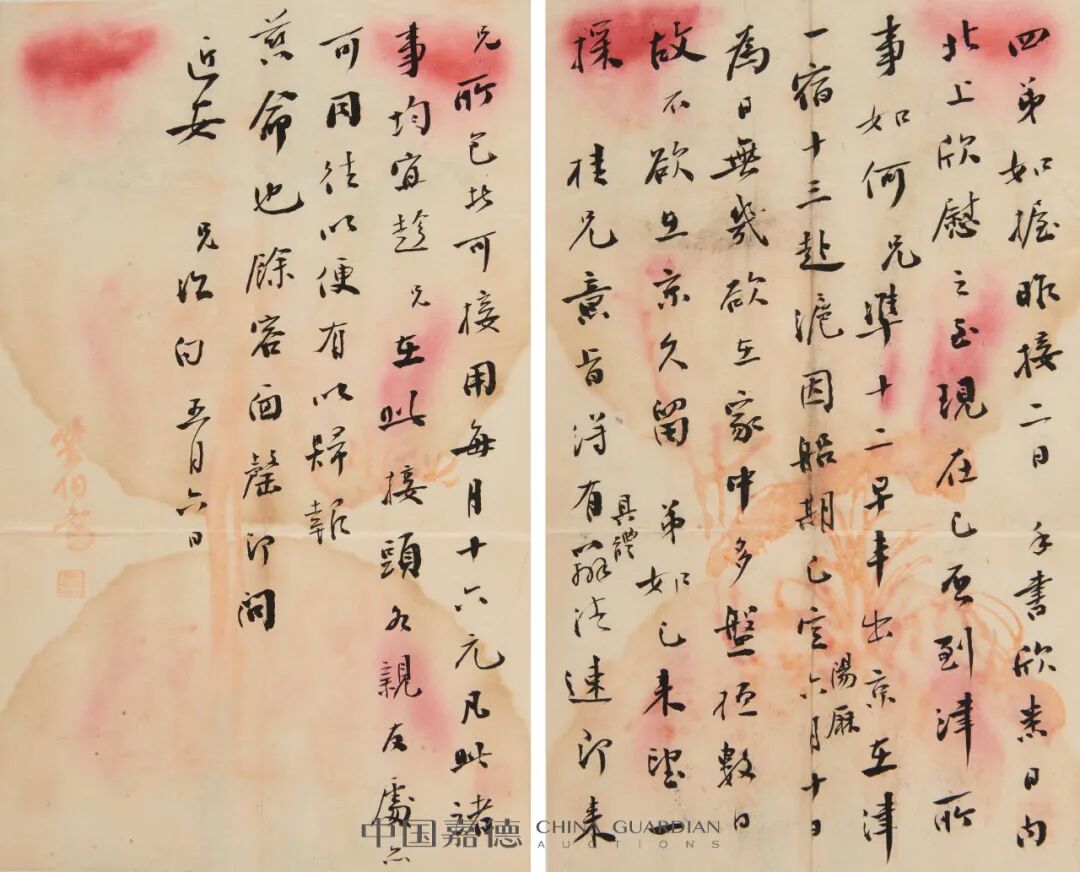 四弟如握昨接二日手書欣悉日內
北上欣慰之至現在已否到津所
事如何兄準十二早車出京在津
一宿十三赴滬因船期已定陽厤六月十日
為日無幾欲在家中多盤桓數日
故不欲在京久留弟如已來望一
探桂兄意旨淂有具體辦法速即來
兄所包北可接用每月十六元凡此諸
事均宜趁兄在此接頭各親友處亦
可同往以便有以歸報
慈命也餘容面罄即問
近安
兄 白五月六日
中国嘉德 CHINA GUARDIAN
AUCTIONS